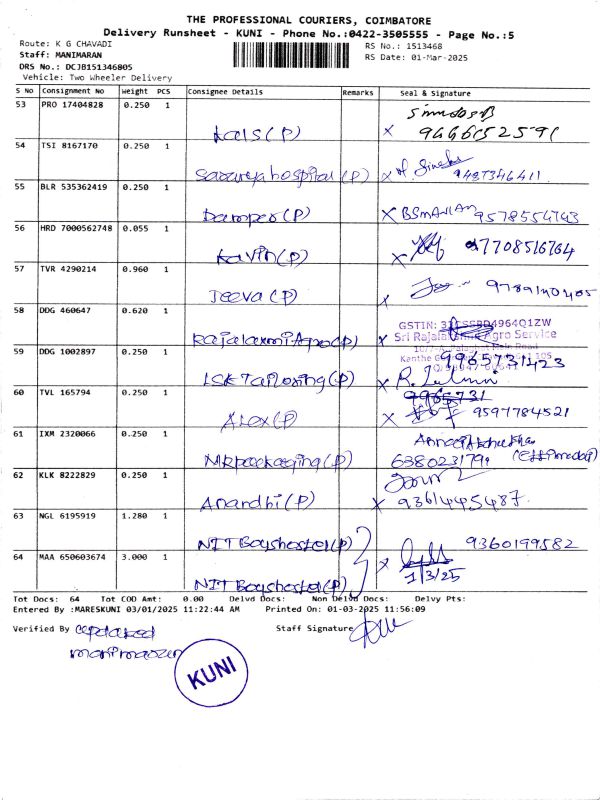 THE PROFESSIONAL COURIERS, COIMBATORE
Delivery Runsheet - KUNI - Phone No.:0422-3505555 - Page No.:5
Route: K G CHAVADI
RS No.: 1513468
Staff: MANIMARAN
RS Date: 01-Mar-2025
DRS No.: DCJB151346805
Vehicle: Two Wheeler Delivery
S No Consignment No Weight PCS Consignee Details Remarks Seal & Signature
53 PRO 17404828 0.250 1
Kals (P) X 9666152591
54 TSI 8167170 0.250 1
hospital (P) X 9487346411
55 BLR 535362419 0.250 1
(P) X 9578554743
56 HRD 7000562748 0.055 1
Kavin (P) X 7708516764
57 TVR 4290214 0.960 1
Jeeva (P) X 9789140405
58 DDG 460647 0.620 1
GSTIN: 4964Q1ZW
Rajalaxmi Agro (P) X Sri Agro Service
59 DDG 1002897 0.250 1
9965731423
LSK Tailoring (P) X
60 TVL 165794 0.250 1
9965731
Alex (P) X 9597784521
61 IXM 2320066 0.250 1
MR packaging (P)
62 KLK 8222829 0.250 1
Anandhi (P) X 9361445487
63 NGL 6195919 1.280 1
NIT Boyshostel (P) 9360199582
64 MAA 650603674 3.000 1
X 1/3/25
NIT Boyshostel (P)
Tot Docs: 64 Tot COD Amt: 0.00 Delvd Docs: Non Delvd Docs: Delvy Pts:
Entered By :MARESKUNI 03/01/2025 11:22:44 AM Printed On: 01-03-2025 11:56:09
Verified By Staff Signature
KUNI